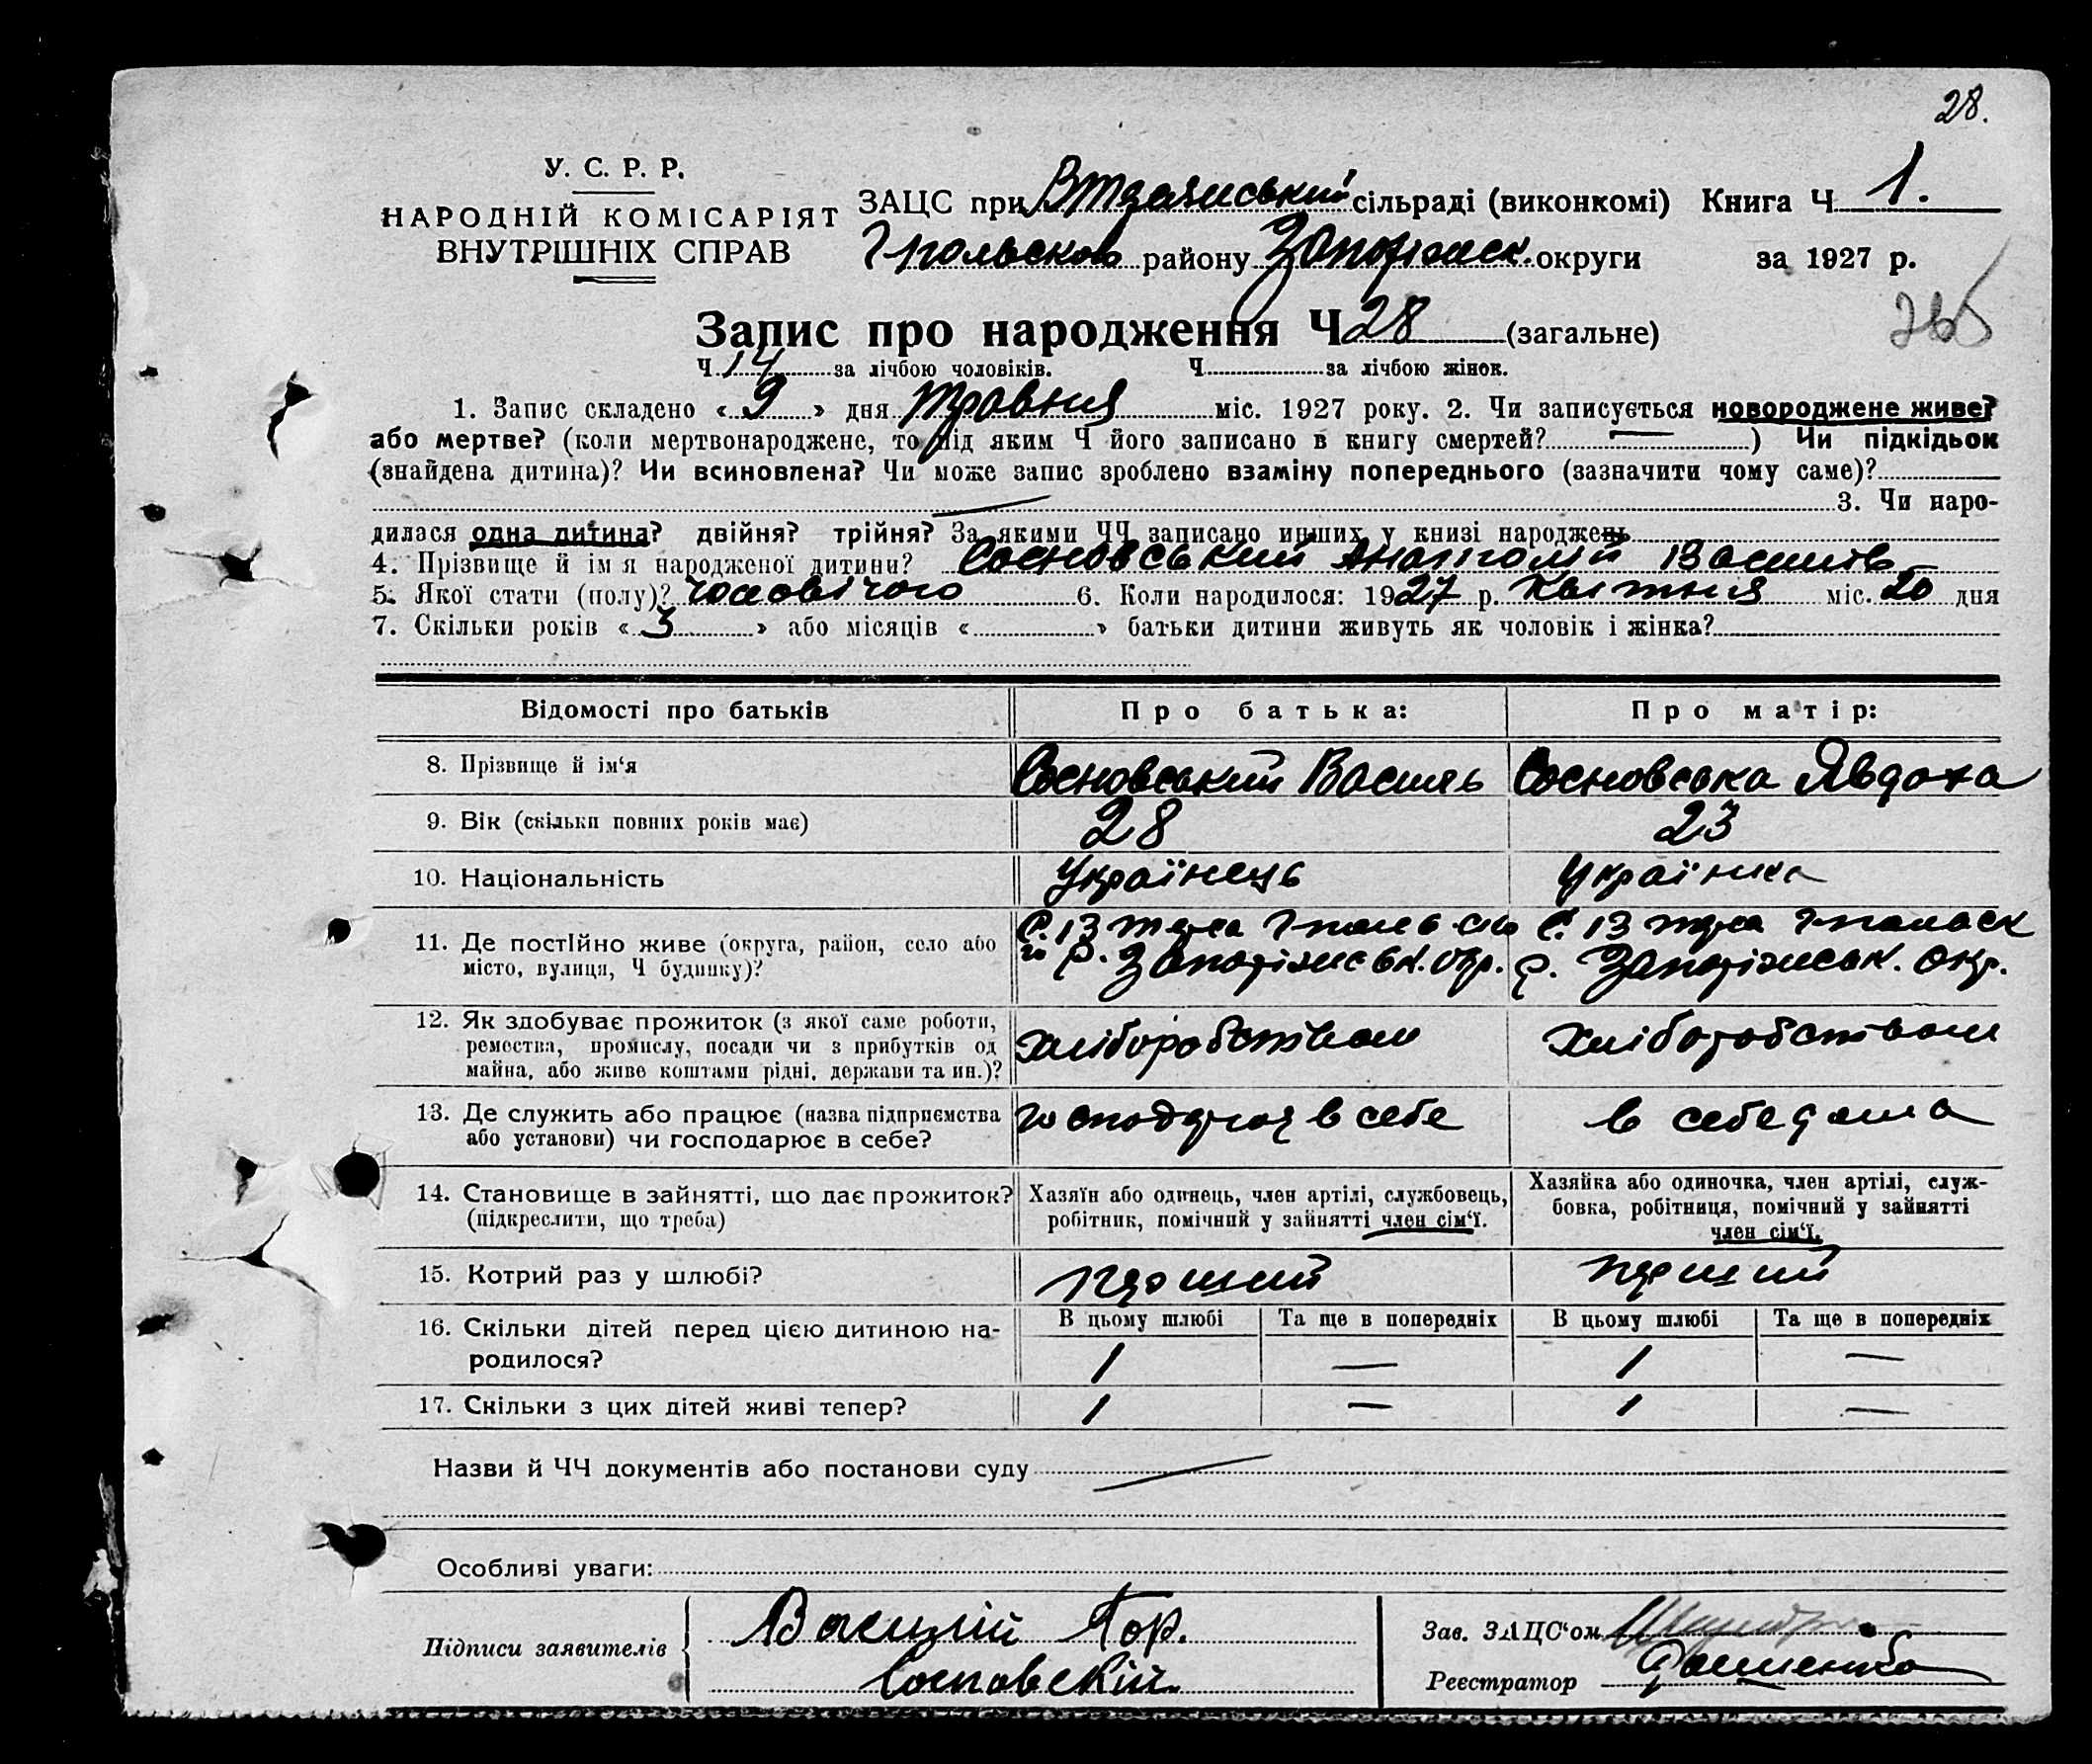 28.
У. С. Р. Р.
НАРОДНІЙ КОМІСАРІЯТ
ВНУТРІШНІХ СПРАВ
ЗАЦС при сільраді (виконкомі) Книга Ч 1.
району Запоріжськ. округи за 1927 р.
Запис про народження Ч 28 (загальне)
Ч 14 за лічбою чоловіків. Ч за лічбою жінок.
1. Запис складено « 9 » дня травня міс. 1927 року. 2. Чи записується новороджене живе?
або мертве? (коли мертвонароджене, то під яким Ч його записано в книгу смертей? — ) Чи підкідьок
(знайдена дитина)? Чи всиновлена? Чи може запис зроблено взаміну попереднього (зазначити чому саме)?
3. Чи наро-
дилася одна дитина? двійня? трійня? За якими ЧЧ записано инших у книзі народжень
4. Прізвище й ім я народженої дитини? Сосновський Анатолій Василів
5. Якої стати (полу)? чоловічого 6. Коли народилося: 1927 р. Квітня міс. 20 дня
7. Скільки років « 3 » або місяців « » батьки дитини живуть як чоловік і жінка?
Відомості про батьків Про батька: Про матір:
8. Прізвище й ім‘я Сосновський Василь Сосновська Явдоха
9. Вік (скільки повних років має) 28 23
10. Національність Українець Українка
11. Де постійно живе (округа, район, село або
місто, вулиця, Ч будинку)?
р. Запоріжськ. окр. р. Запоріжськ. окр.
12. Як здобуває прожиток (з якої саме роботи,
ремества, промислу, посади чи з прибутків од
майна, або живе коштами рідні, держави та ин.)?
хліборобством Хліборобством
13. Де служить або працює (назва підприємства
або установи) чи господарює в себе?
в себе в себе дома
14. Становище в зайнятті, що дає прожиток?
(підкреслити, що треба)
Хазяїн або одинець, член артілі, службовець,
робітник, помічний у зайнятті член сім‘ї.
Хазяйка або одиночка, член артілі, служ-
бовка, робітниця, помічний у зайнятті
член сім‘ї.
15. Котрий раз у шлюбі? перший перший
16. Скільки дітей перед цією дитиною на-
родилося?
В цьому шлюбі Та ще в попередніх В цьому шлюбі Та ще в попередніх
1 — 1 —
17. Скільки з цих дітей живі тепер? 1 — 1 —
Назви й ЧЧ документів або постанови суду
Особливі уваги:
Підписи заявителів
Василій
Сосновскій
Зав. ЗАЦС‘ом
Реєстратор